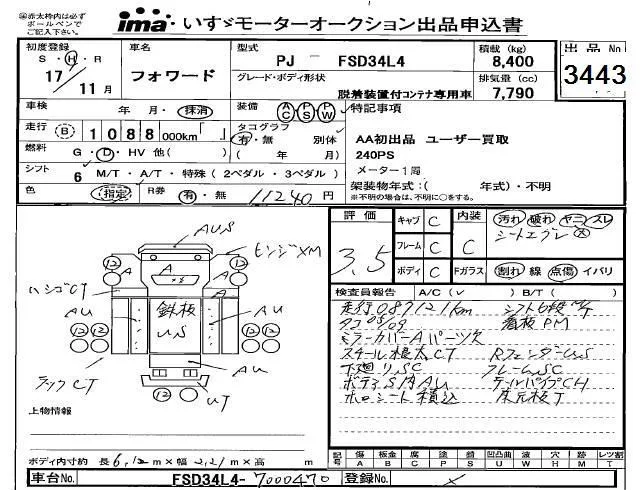 ㊟赤太枠内は必ず
ボールペンで
ご記入下さい。
ima いすゞモーターオークション出品申込書
初度登録
S ・ H ・ R
17
11 月
車名
フォワード
型式
PJ - FSD34L4
グレード・ボディ形状
脱着装置付コンテナ専用車
積載 (kg)
8,400
排気量 (cc)
7,790
出品No
3443
車検 年 月・抹消
装備 AC PS PW
走行 B 1088 000km「 」
タコグラフ
有・無 別体
( 年 月)
燃料 G・D・HV 他( )
シフト 6 M/T・A/T・特殊(2ペダル・3ペダル)
色 指定 R券 有・無 11240円
特記事項
AA初出品 ユーザー買取
240PS
メーター1周
架装物年式:( 年式)・不明
※不明の場合は、不明に○をする。
評価
3.5
キャブ C
フレーム C
ボディ C
内装
C
Fガラス
汚れ 破れ ヤニ スレ
割れ 線 点傷 イバリ
検査員報告 A/C(✓ ) B/T( )
走行087121km シフト6段M/T
タコ05/09 看板PM
ミラーカバーAパーツ欠
スチール根太CT RフェンダーUS
下廻りSC フレームSC
ボデーSMAU テールパイプCH
ホロシート積込 床元板T
AUS
ヒンジXM
ハシゴCT
A
A
A
AU
AU
鉄板
US
AU
デックCT
UT
⑫
⑫
⑫⑫
⑫⑫
⑫
上物情報
ボディ内寸約 長6.12m×幅2.21m×高 m
記号 傷 板金 腐 塗 錆 凹凸曲 波 穴 跡 レンズ割
A B C P S U W H M T
車台No. FSD34L4-7000470 登録No.